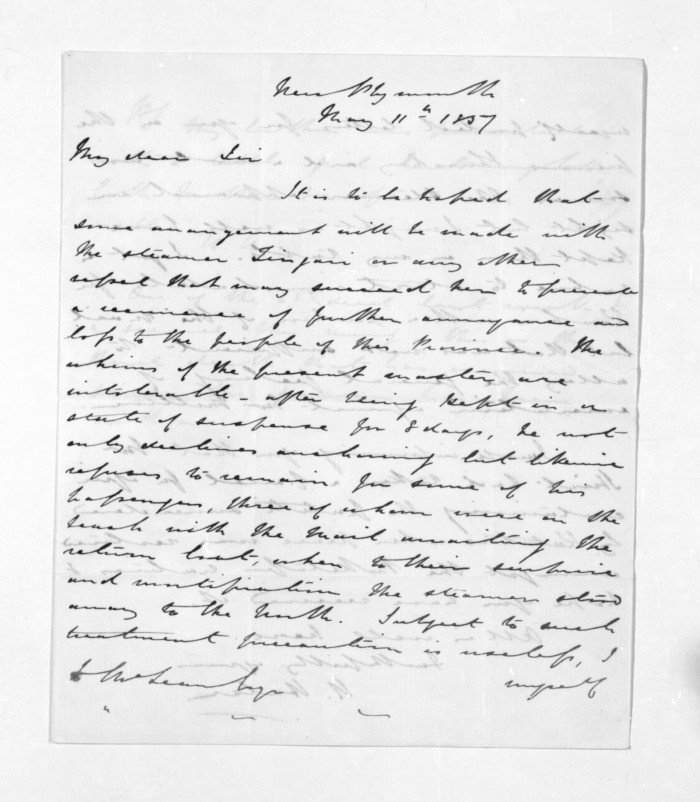 New Plymouth
May 11th 1857
My dear Sir
It is to be hoped that
some arrangement will be made with
the steamer Zingari or any other
vessel that may succeed her to prevent
a recurrence of further annoyance and
loss to the people of this Province. The
whims of the present master are
intolerable - after being kept in a
state of suspense for 8 days, he not
only declines anchoring but likewise
refuses to remain for some of his
passengers, three of whom were on the
beach with the mail awaiting the
return boat, when to their surprise
and mortification the steamer stood
away to the North. Subject to such
treatment precaution is useless, I
McLean Esqr
myself